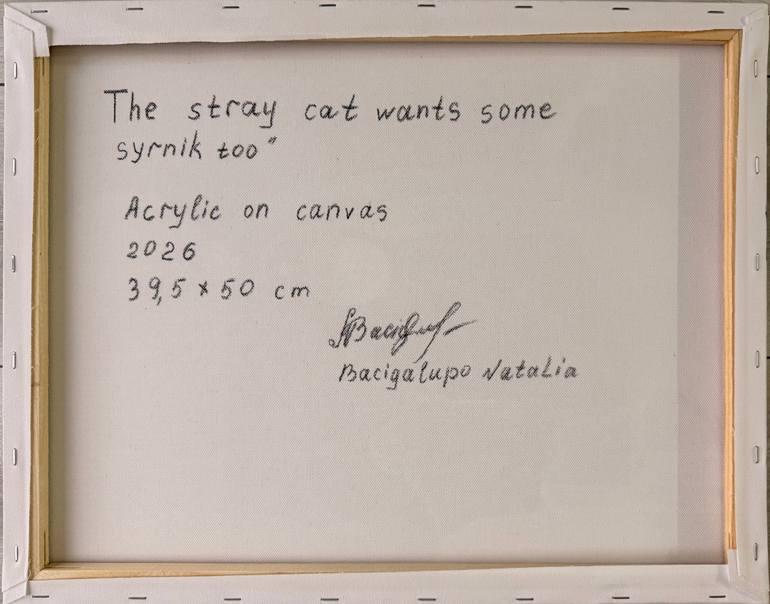 The stray cat wants some
syrnik too"
Acrylic on canvas
2026
39,5 x 50 cm
Bacigalupo Natalia